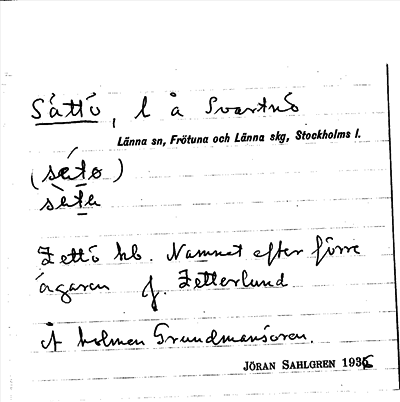 Sättö, l å Svartnö
Länna sn, Frötuna och Länna skg, Stockholms l.
(sèto)
sèta
Zettö kb. Namnet efter förre
ägaren f. Zetterlund
åt holmen Grundmansören.
JÖRAN SAHLGREN 1935